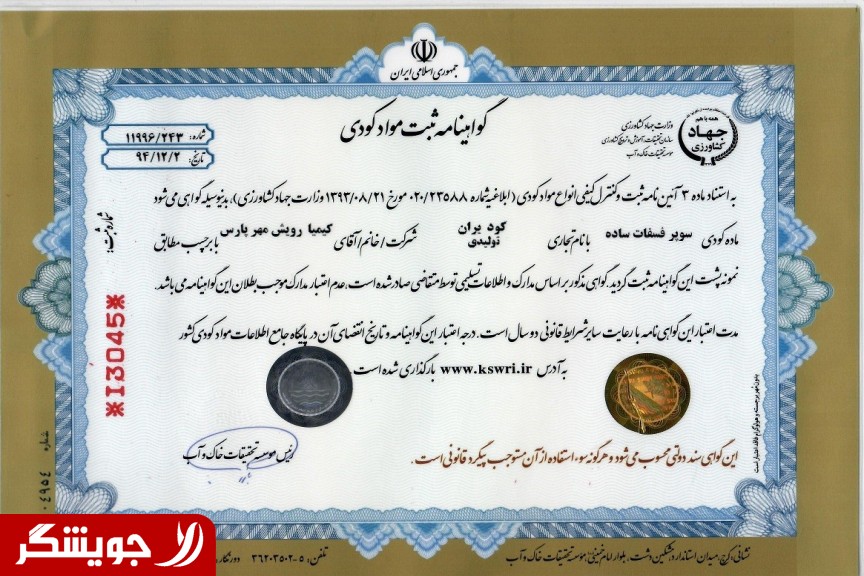 جمهوری اسلامی ایران
گواهینامه ثبت مواد کودی
همه با هم
جهاد
کشاورزی
وزارت جهاد کشاورزی
سازمان تحقیقات، آموزش و ترویج کشاورزی
موسسه تحقیقات خاک و آب
شماره: ۱۱۹۹۶/۲۴۳
تاریخ: ۹۴/۱۲/۲
به استناد ماده ۳ آئین نامه ثبت و کنترل کیفی انواع مواد کودی (ابلاغیه شماره ۰۲۰/۲۳۵۸۸ مورخ ۱۳۹۳/۰۸/۲۱ وزارت جهاد کشاورزی)، بدینوسیله گواهی می شود
ماده کودی سوپر فسفات ساده با نام تجاری کود یران تولیدی شرکت/خانم/آقای کیمیا رویش مهر پارس با برچسب مطابق
نمونه پشت این گواهینامه ثبت گردید. گواهی مذکور بر اساس مدارک و اطلاعات تسلیمی توسط متقاضی صادر شده است، عدم اعتبار مدارک موجب بطلان این گواهینامه می باشد.
مدت اعتبار این گواهی نامه با رعایت سایر شرایط قانونی دو سال است. درجه اعتبار این گواهینامه و تاریخ انقضای آن در پایگاه جامع اطلاعات مواد کودی کشور
به آدرس www.kswri.ir بارگذاری شده است
این گواهی سند دولتی محسوب می شود و هرگونه سوء استفاده از آن مستوجب پیگرد قانونی است.
رئیس موسسه تحقیقات خاک و آب
شماره ثبت:
*13045*
بدون مهر برجسته و هولوگرام فاقد اعتبار است
شماره
۰۴۹۵۴
نشانی: کرج، میدان استاندارد، مشکین دشت، بلوار امام خمینی، موسسه تحقیقات خاک و آب
تلفن: ۵-۳۶۲۰۳۵۰۲ دورنگار:
جویشگر